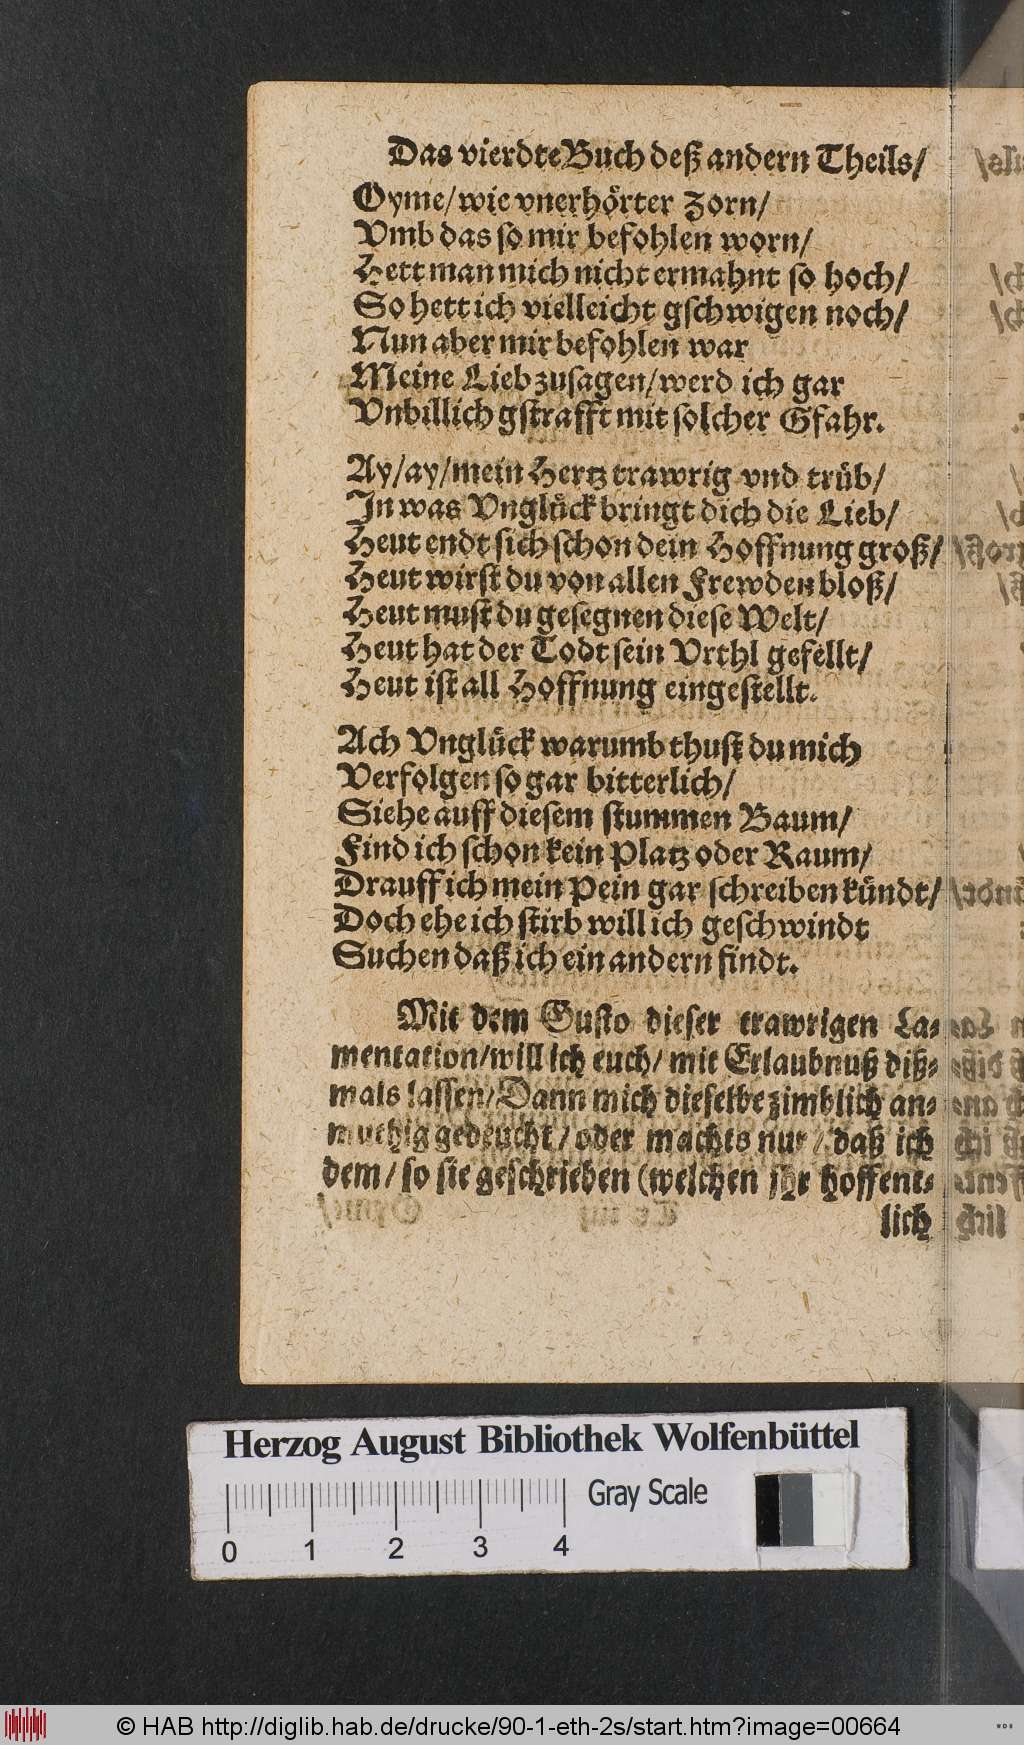 Das vierdte Buch deß andern Theils/
Oyme/ wie vnerhörter Zorn/
Vmb das so mir befohlen worn/
Hett man mich nicht ermahnt so hoch/
So hett ich vielleicht gschwigen noch/
Nun aber mir befohlen war
Meine Lieb zusagen/ werd ich gar
Vnbillich gstrafft mit solcher Gfahr.
Ay/ ay/ mein Hertz trawrig vnd trüb/
In was Vnglück bringt dich die Lieb/
Heut endt sich schon dein Hoffnung groß/
Heut wirst du von allen Frewden bloß/
Heut must du gesegnen diese Welt/
Heut hat der Todt sein Vrthl gefellt/
Heut ist all Hoffnung eingestellt.
Ach Vnglück warumb thust du mich
Verfolgen so gar bitterlich/
Siehe auff diesem stummen Baum/
Find ich schon kein Platz oder Raum/
Drauff ich mein Pein gar schreiben kündt/
Doch ehe ich stirb will ich geschwindt
Suchen daß ich ein andern findt.
Mit dem Gusto dieser trawrigen La-
mentation/ will ich euch/ mit Erlaubnuß diß-
mals lassen/ Dann mich dieselbe zimblich an-
muthig gedeucht/ oder machts nur/ daß ich
dem/ so sie geschrieben (welchen jhr hoffent-
lich
Herzog August Bibliothek Wolfenbüttel
Gray Scale
0 1 2 3 4
© HAB http://diglib.hab.de/drucke/90-1-eth-2s/start.htm?image=00664